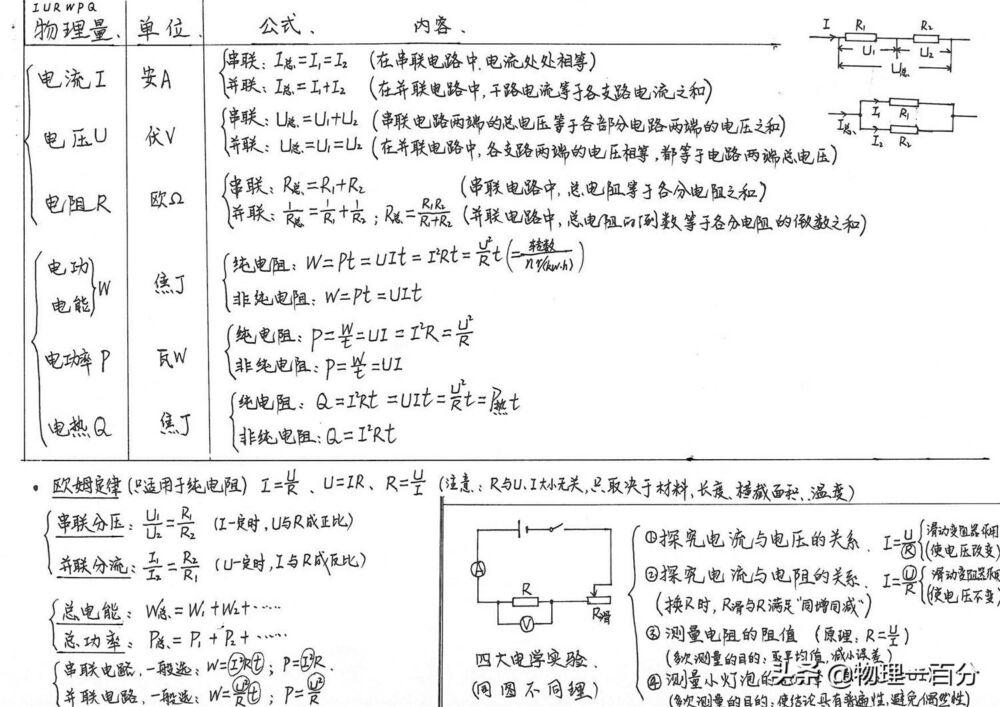 IURWPQ
物理量、 单位、 公式、 内容、
电流I 安A
串联：I总=I₁=I₂ (在串联电路中、电流处处相等)
并联：I总=I₁+I₂ (在并联电路中，干路电流等于各支路电流之和)
电压U 伏V
串联：U总=U₁+U₂ (串联电路两端的总电压等于各部分电路两端的电压之和)
并联：U总=U₁=U₂ (在并联电路中，各支路两端的电压相等，都等于电路两端总电压)
电阻R 欧Ω
串联：R总=R₁+R₂ (串联电路中，总电阻等于各分电阻之和)
并联：1/R总=1/R₁+1/R₂；R总=R₁R₂/R₁+R₂ (并联电路中，总电阻的倒数等于各分电阻的倒数之和)
电功 电能 W 焦J
纯电阻：W=Pt=UIt=I²Rt=U²/R t (=转数/n r/(kw·h))
非纯电阻：W=Pt=UIt
电功率P 瓦W
纯电阻：P=W/t=UI=I²R=U²/R
非纯电阻：P=W/t=UI
电热Q 焦J
纯电阻：Q=I²Rt=UIt=U²/R t=P热t
非纯电阻：Q=I²Rt
I R₁ R₂
U₁ U₂
U总
I总 I₁ R₁
I₂ R₂
·欧姆定律(只适用于纯电阻) I=U/R、U=IR、R=U/I (注意：R与U、I大小无关，只取决于材料，长度、横截面积、温度)
串联分压：U₁/U₂=R₁/R₂ (I一定时，U与R成正比)
并联分流：I₁/I₂=R₂/R₁ (U一定时，I与R成反比)
总电能：W总=W₁+W₂+……
总功率：P总=P₁+P₂+……
串联电路，一般选：W=I²Rt；P=I²R.
并联电路，一般选：W=U²/R t；P=U²/R
A R R滑
V
四大电学实验、
(同图不同理)
①探究电流与电压的关系、I=U/R 滑动变阻器作用
(使电压改变)
②探究电流与电阻的关系、I=U/R 滑动变阻器作用
(使电压不变)
(换R时，R滑与R满足"同增同减")
③测量电阻的阻值 (原理：R=U/I)
(多次测量的目的：取平均值，减小误差)
④测量小灯泡的
(多次测量的目的：使结论具有普遍性，避免偶然性)
头条@物理一百分